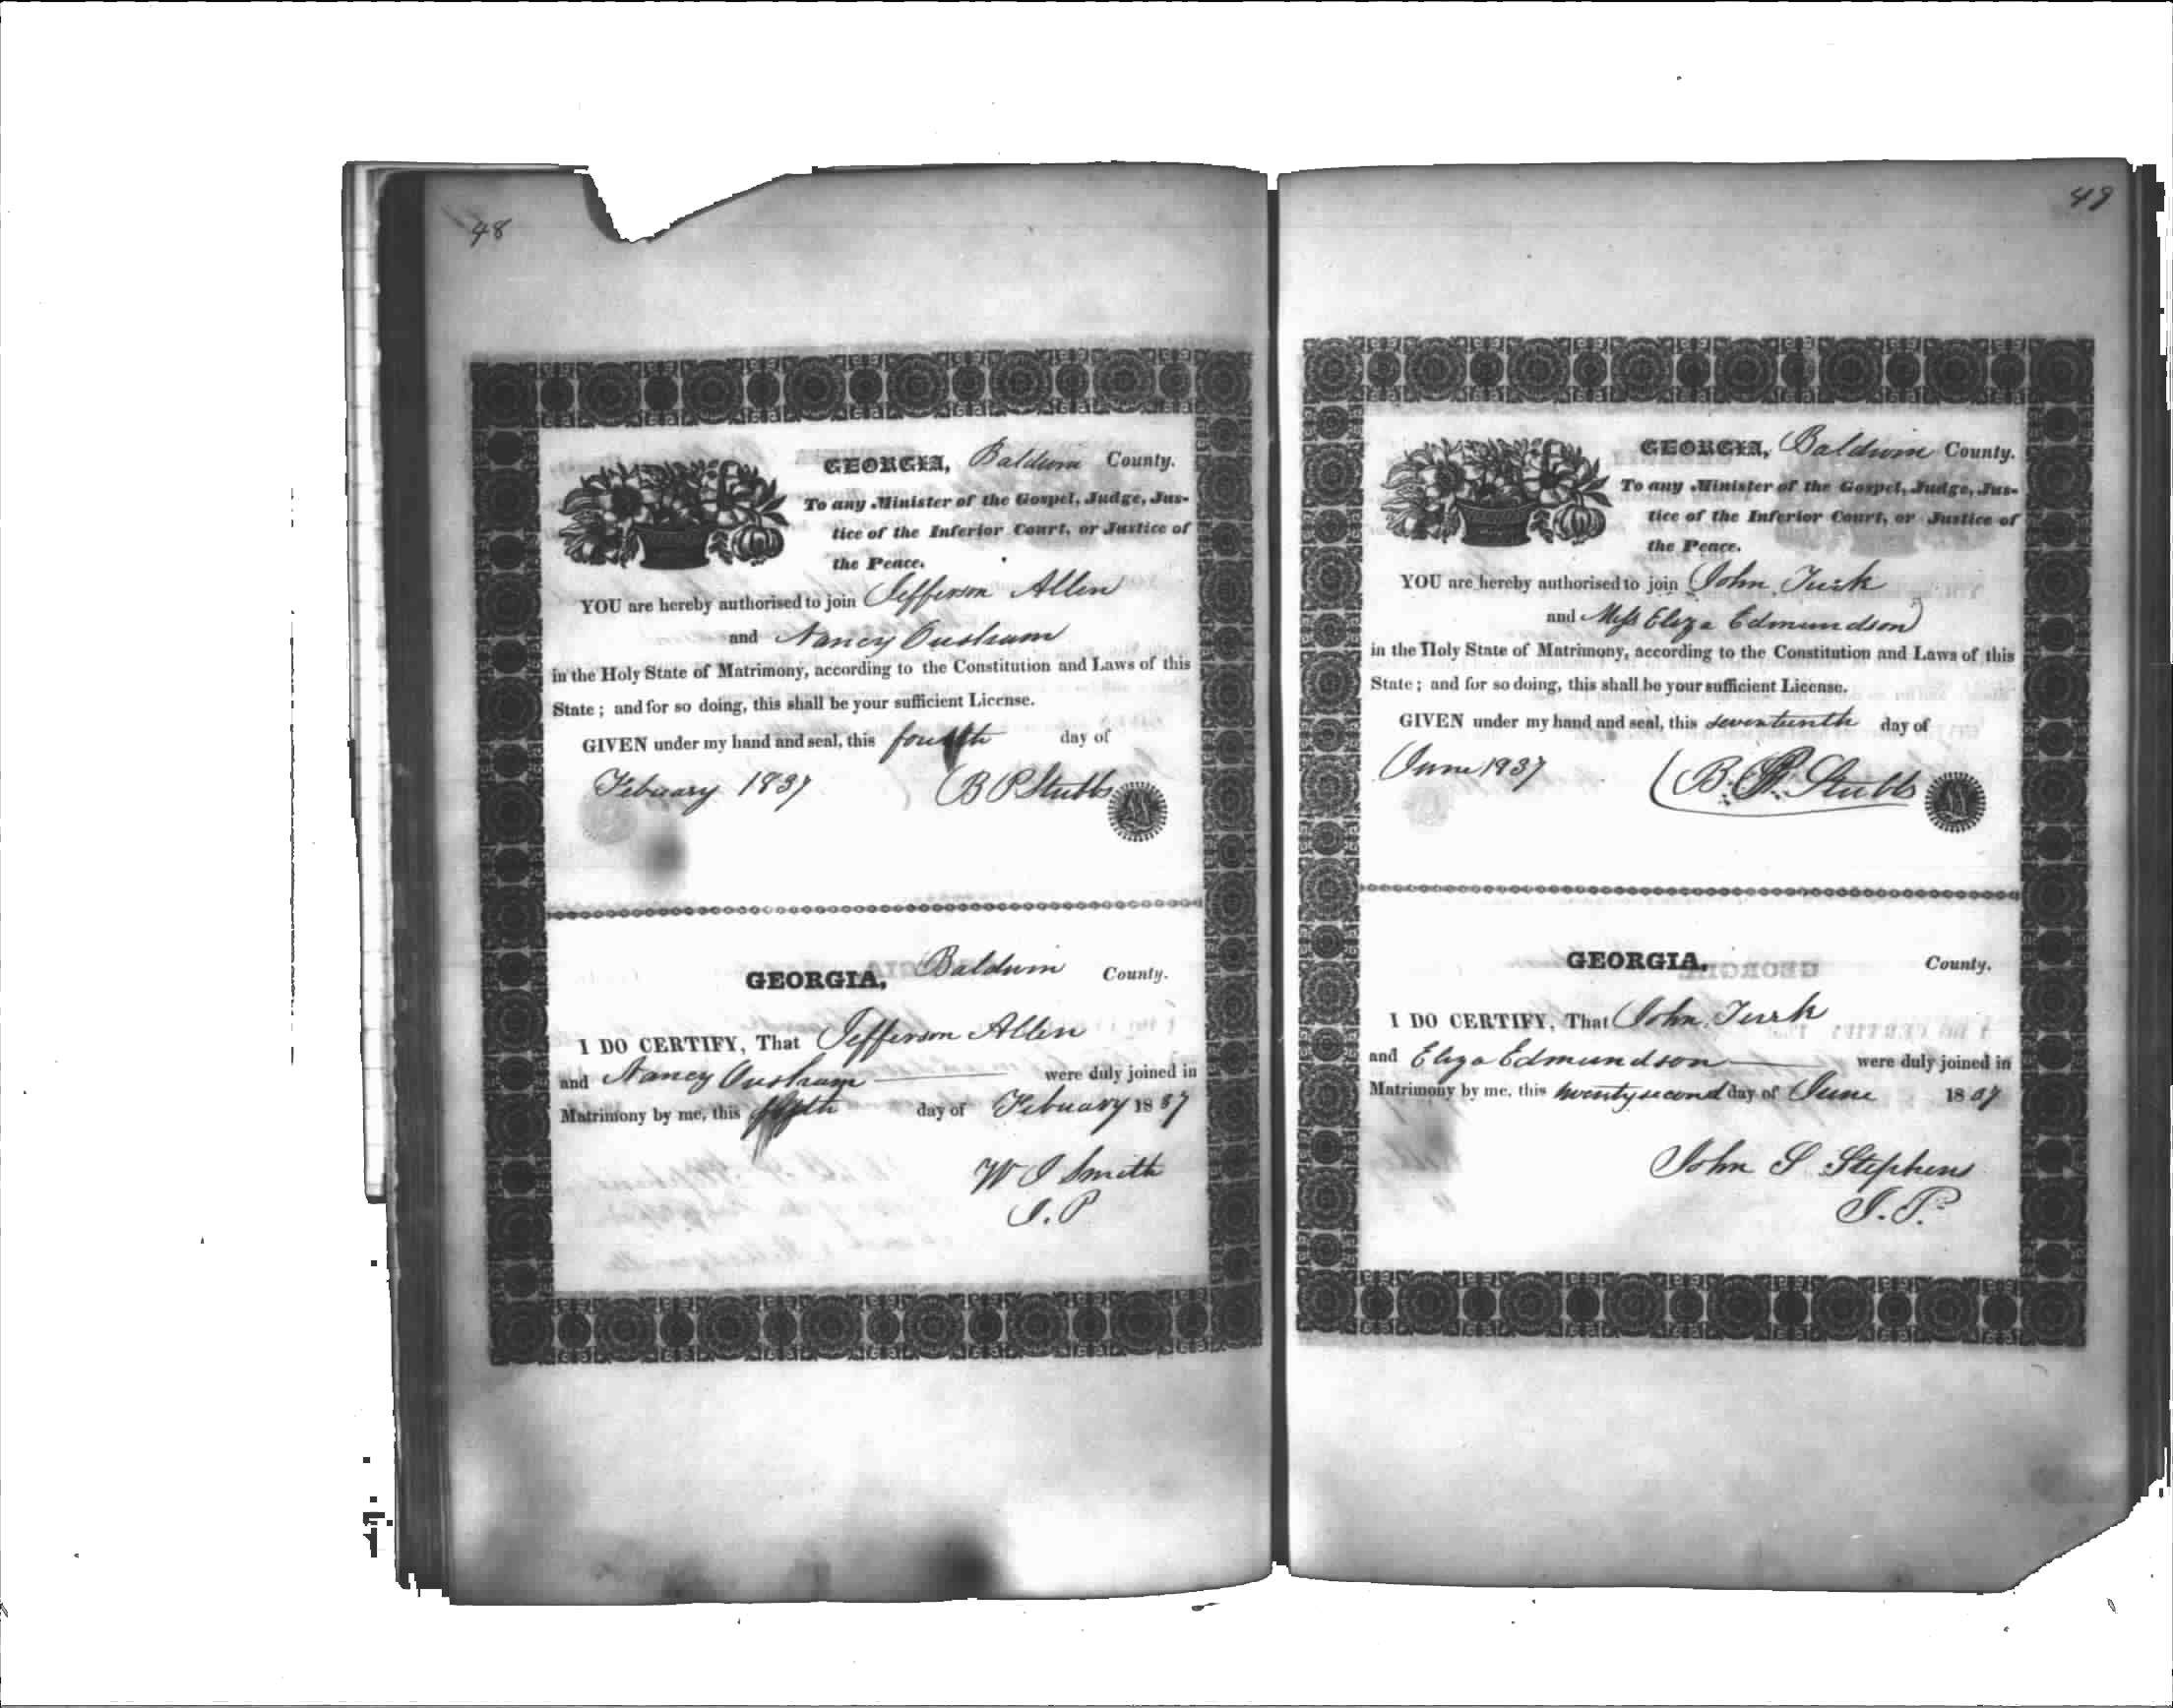 48
GEORGIA, Baldwin County.
To any Minister of the Gospel, Judge, Jus-
tice of the Inferior Court, or Justice of
the Peace.
YOU are hereby authorised to join Jefferson Allen
and Nancy
in the Holy State of Matrimony, according to the Constitution and Laws of this
State; and for so doing, this shall be your sufficient License.
GIVEN under my hand and seal, this fourth day of
February 1837 B P Stubbs
GEORGIA, Baldwin County.
I DO CERTIFY, That Jefferson Allen
and Nancy were duly joined in
Matrimony by me, this fifth day of February 1837
W J Smith
J. P
49
GEORGIA, Baldwin County.
To any Minister of the Gospel, Judge, Jus-
tice of the Inferior Court, or Justice of
the Peace.
YOU are hereby authorised to join John Turk
and Miss Eliza Edmundson
in the Holy State of Matrimony, according to the Constitution and Laws of this
State; and for so doing, this shall be your sufficient License.
GIVEN under my hand and seal, this seventeenth day of
June 1837 B. P. Stubbs
GEORGIA, County.
I DO CERTIFY, That John Turk
and Eliza Edmundson were duly joined in
Matrimony by me, this twenty second day of June 1837
John S Stephens
J. P.